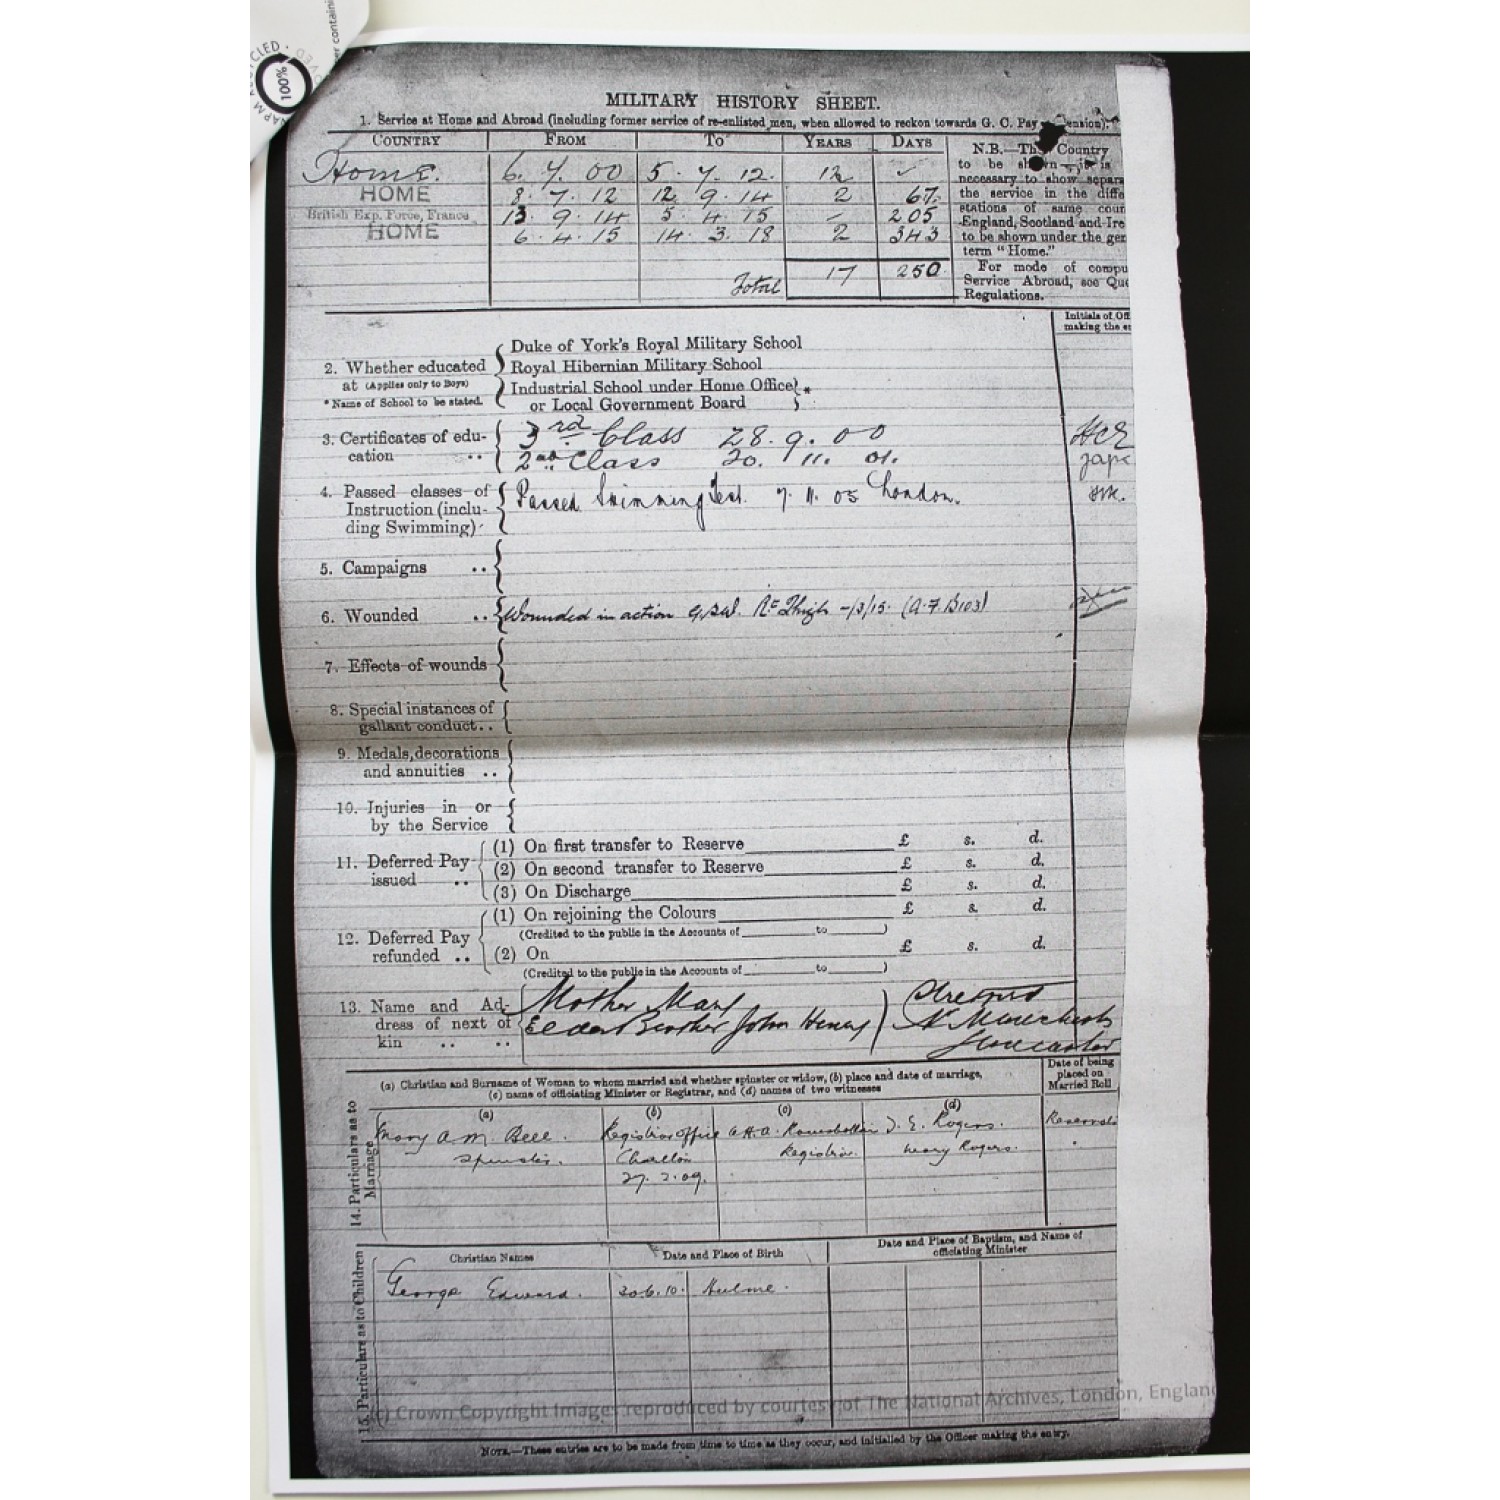 100%
MILITARY HISTORY SHEET.
1. Service at Home and Abroad (including former service of re-enlisted men, when allowed to reckon towards G. C. Pay ension).
COUNTRY FROM TO YEARS DAYS
Home. 6. 7. 00 5. 7. 12. 12 ✓
HOME 8. 7. 12 12. 9. 14 2 67.
British Exp. Force, France 13. 9. 14 5. 4. 15 - 205
HOME 6. 4. 15 14. 3. 18 2 343
Total 17 250
N.B.—The Country
to be shown
necessary to show separa
the service in the diffe
stations of same coun
England, Scotland and Ire
to be shown under the gen
term "Home."
For mode of compu
Service Abroad, see Que
Regulations.
Initials of Off
making the en
2. Whether educated at (Applies only to Boys)
* Name of School to be stated.
Duke of York's Royal Military School
Royal Hibernian Military School
Industrial School under Home Office *
or Local Government Board
3. Certificates of edu-
cation ..
3rd Class 28. 9. 00
2nd Class 20. 11. 01.
4. Passed classes of
Instruction (inclu-
ding Swimming)
Passed Swimming Test. 7. 11. 05 London.
5. Campaigns ..
6. Wounded .. Wounded in action G.S.W. Rt Thigh -/3/15. (A.F. B103)
7. Effects of wounds
8. Special instances of
gallant conduct..
9. Medals, decorations
and annuities ..
10. Injuries in or
by the Service
11. Deferred Pay
issued ..
(1) On first transfer to Reserve £ s. d.
(2) On second transfer to Reserve £ s. d.
(3) On Discharge £ s. d.
12. Deferred Pay
refunded ..
(1) On rejoining the Colours £ s. d.
(Credited to the public in the Accounts of to )
(2) On £ s. d.
(Credited to the public in the Accounts of to )
13. Name and Ad-
dress of next of
kin .. ..
Mother Mary
Elder Brother John Henry
14. Particulars as to Marriage
(a) Christian and Surname of Woman to whom married and whether spinster or widow, (b) place and date of marriage,
(c) name of officiating Minister or Registrar, and (d) names of two witnesses
Date of being
placed on
Married Roll
(a) (b) (c) (d)
Mary A. M. Bell. Registrar Office A. H. A. J. E. Rogers.
Spinster. Chorlton Registrar. Mary Rogers.
27. 2. 09.
15. Particulars as to Children
Christian Names Date and Place of Birth Date and Place of Baptism, and Name of
officiating Minister
George Edward. 30.6.10. Hulme.
(c) Crown Copyright Images reproduced by courtesy of The National Archives, London, England
NOTE.—These entries are to be made from time to time as they occur, and initialled by the Officer making the entry.